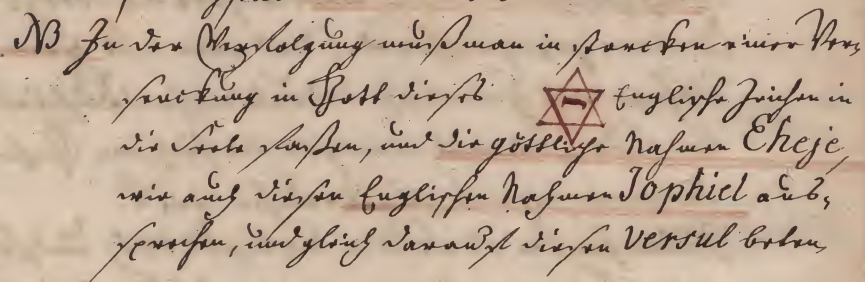 NB In der Verfolgung muß man in starcken einer Ver-
senckung in Gott dieses י Englische Zeichen in
die Seele faßen, und die göttliche Nahmen Eheje,
wie auch diesen Englischen Nahmen Jophiel aus-
sprechen, und gleich darauf diesen Versul beten,